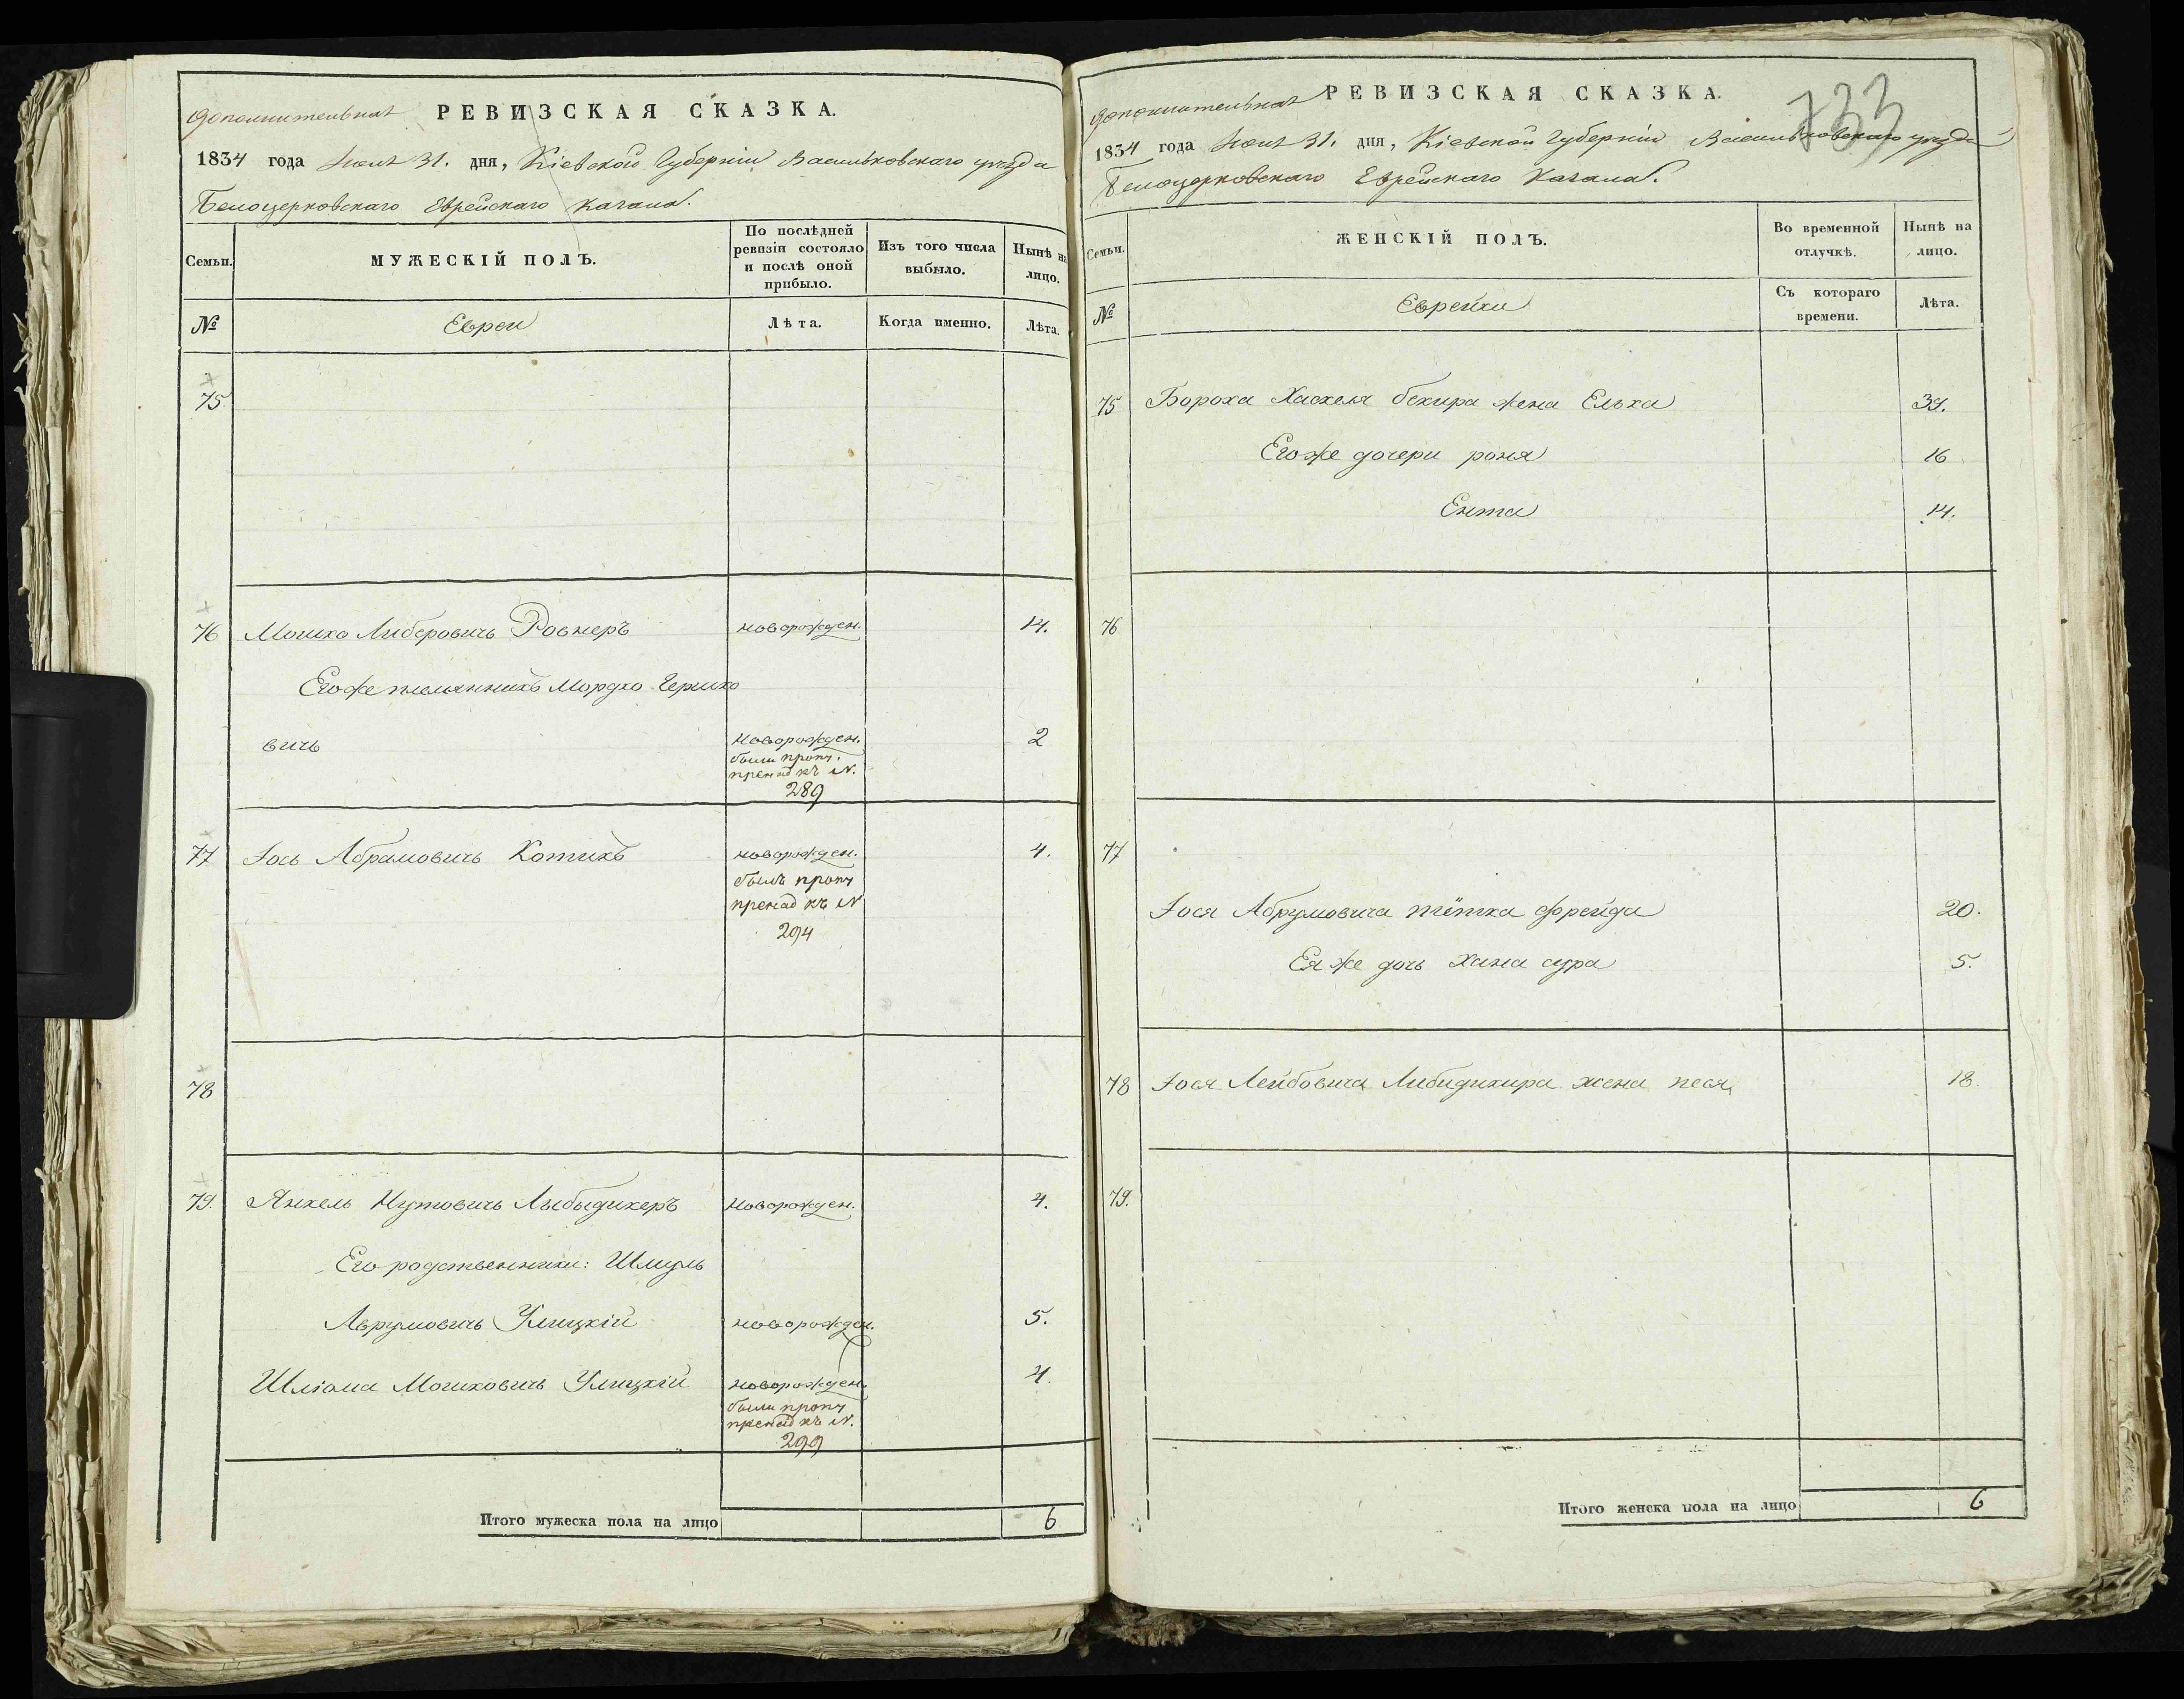 Дополнительная РЕВИЗСКАЯ СКАЗКА.
1834 года Июля 31. дня, Кіевской Губерніи Васильковскаго уезда
Белоцерковскаго Еврейскаго Кагала.
Семьи.
МУЖЕСКІЙ ПОЛЪ.
По послѣдней ревизіи состояло и послѣ оной прибыло.
Изъ того числа выбыло.
Нынѣ на лицо.
№
Евреи
Лѣта.
Когда именно.
Лѣта.
75
76 Мошко Либеровичь Ровнеръ новорожден. 14.
Егоже племянникъ Мордко Гершко
вичь новорожден. 2
были проп.
пренад къ N.
289
77 Іось Абрамовичь Котикъ новорожден. 4.
былъ проп
пренад къ N
294
78
79. Янкель Нутовичь Лыбыдикеръ новорожден. 4.
Его родственники: Шмуль
Аврумовичь Улицкій новорожден. 5.
Шліома Мошковичь Улицкій новорожден. 4.
были проп
пренад къ N.
299
Итого мужеска пола на лицо 6
733
Дополнительная РЕВИЗСКАЯ СКАЗКА.
1834 года Июля 31. дня, Кіевской Губерніи Васильковскаго уезда
Белоцерковскаго Еврейскаго Кагала.
Семьи.
ЖЕНСКІЙ ПОЛЪ.
Во временной отлучкѣ.
Нынѣ на лицо.
№
Еврейки
Съ котораго времени.
Лѣта.
75 Бороха Хаскеля бекира жена Елька 39.
Егоже дочери роня 16
Ента 14.
76
77
Іося Абрумовича тётка фрейда 20.
Ея же дочь Хана сура 5.
78 Іося Лейбовича Либидикира жена песя 18.
79.
Итого женска пола на лицо 6